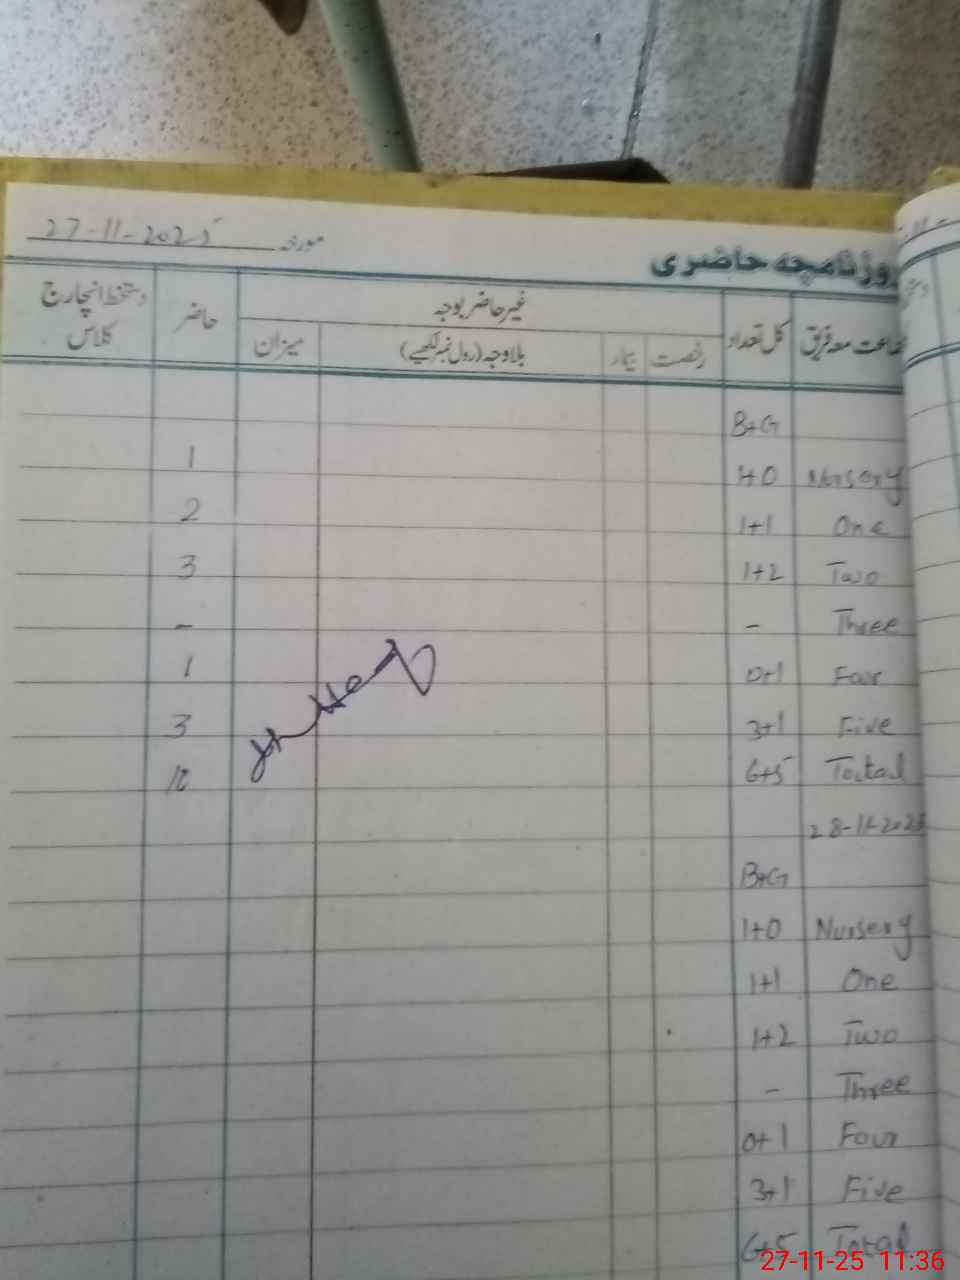 روزنامچہ حاضری مورخہ 27-11-2025
جماعت معہ فریق کل تعداد غیر حاضر بوجہ حاضر دستخط انچارج کلاس
رخصت بیمار بلاوجہ (رول نمبر لکھیے) میزان
B+G
Nursery 1+0 1
One 1+1 2
Two 1+2 3
Three - -
Four 0+1 1
Five 3+1 3
Toctal 6+5 10
28-11-2025
B+G
Nursery 1+0
One 1+1
Two 1+2
Three -
Four 0+1
Five 3+1
Total 6+5
27-11-25 11:36